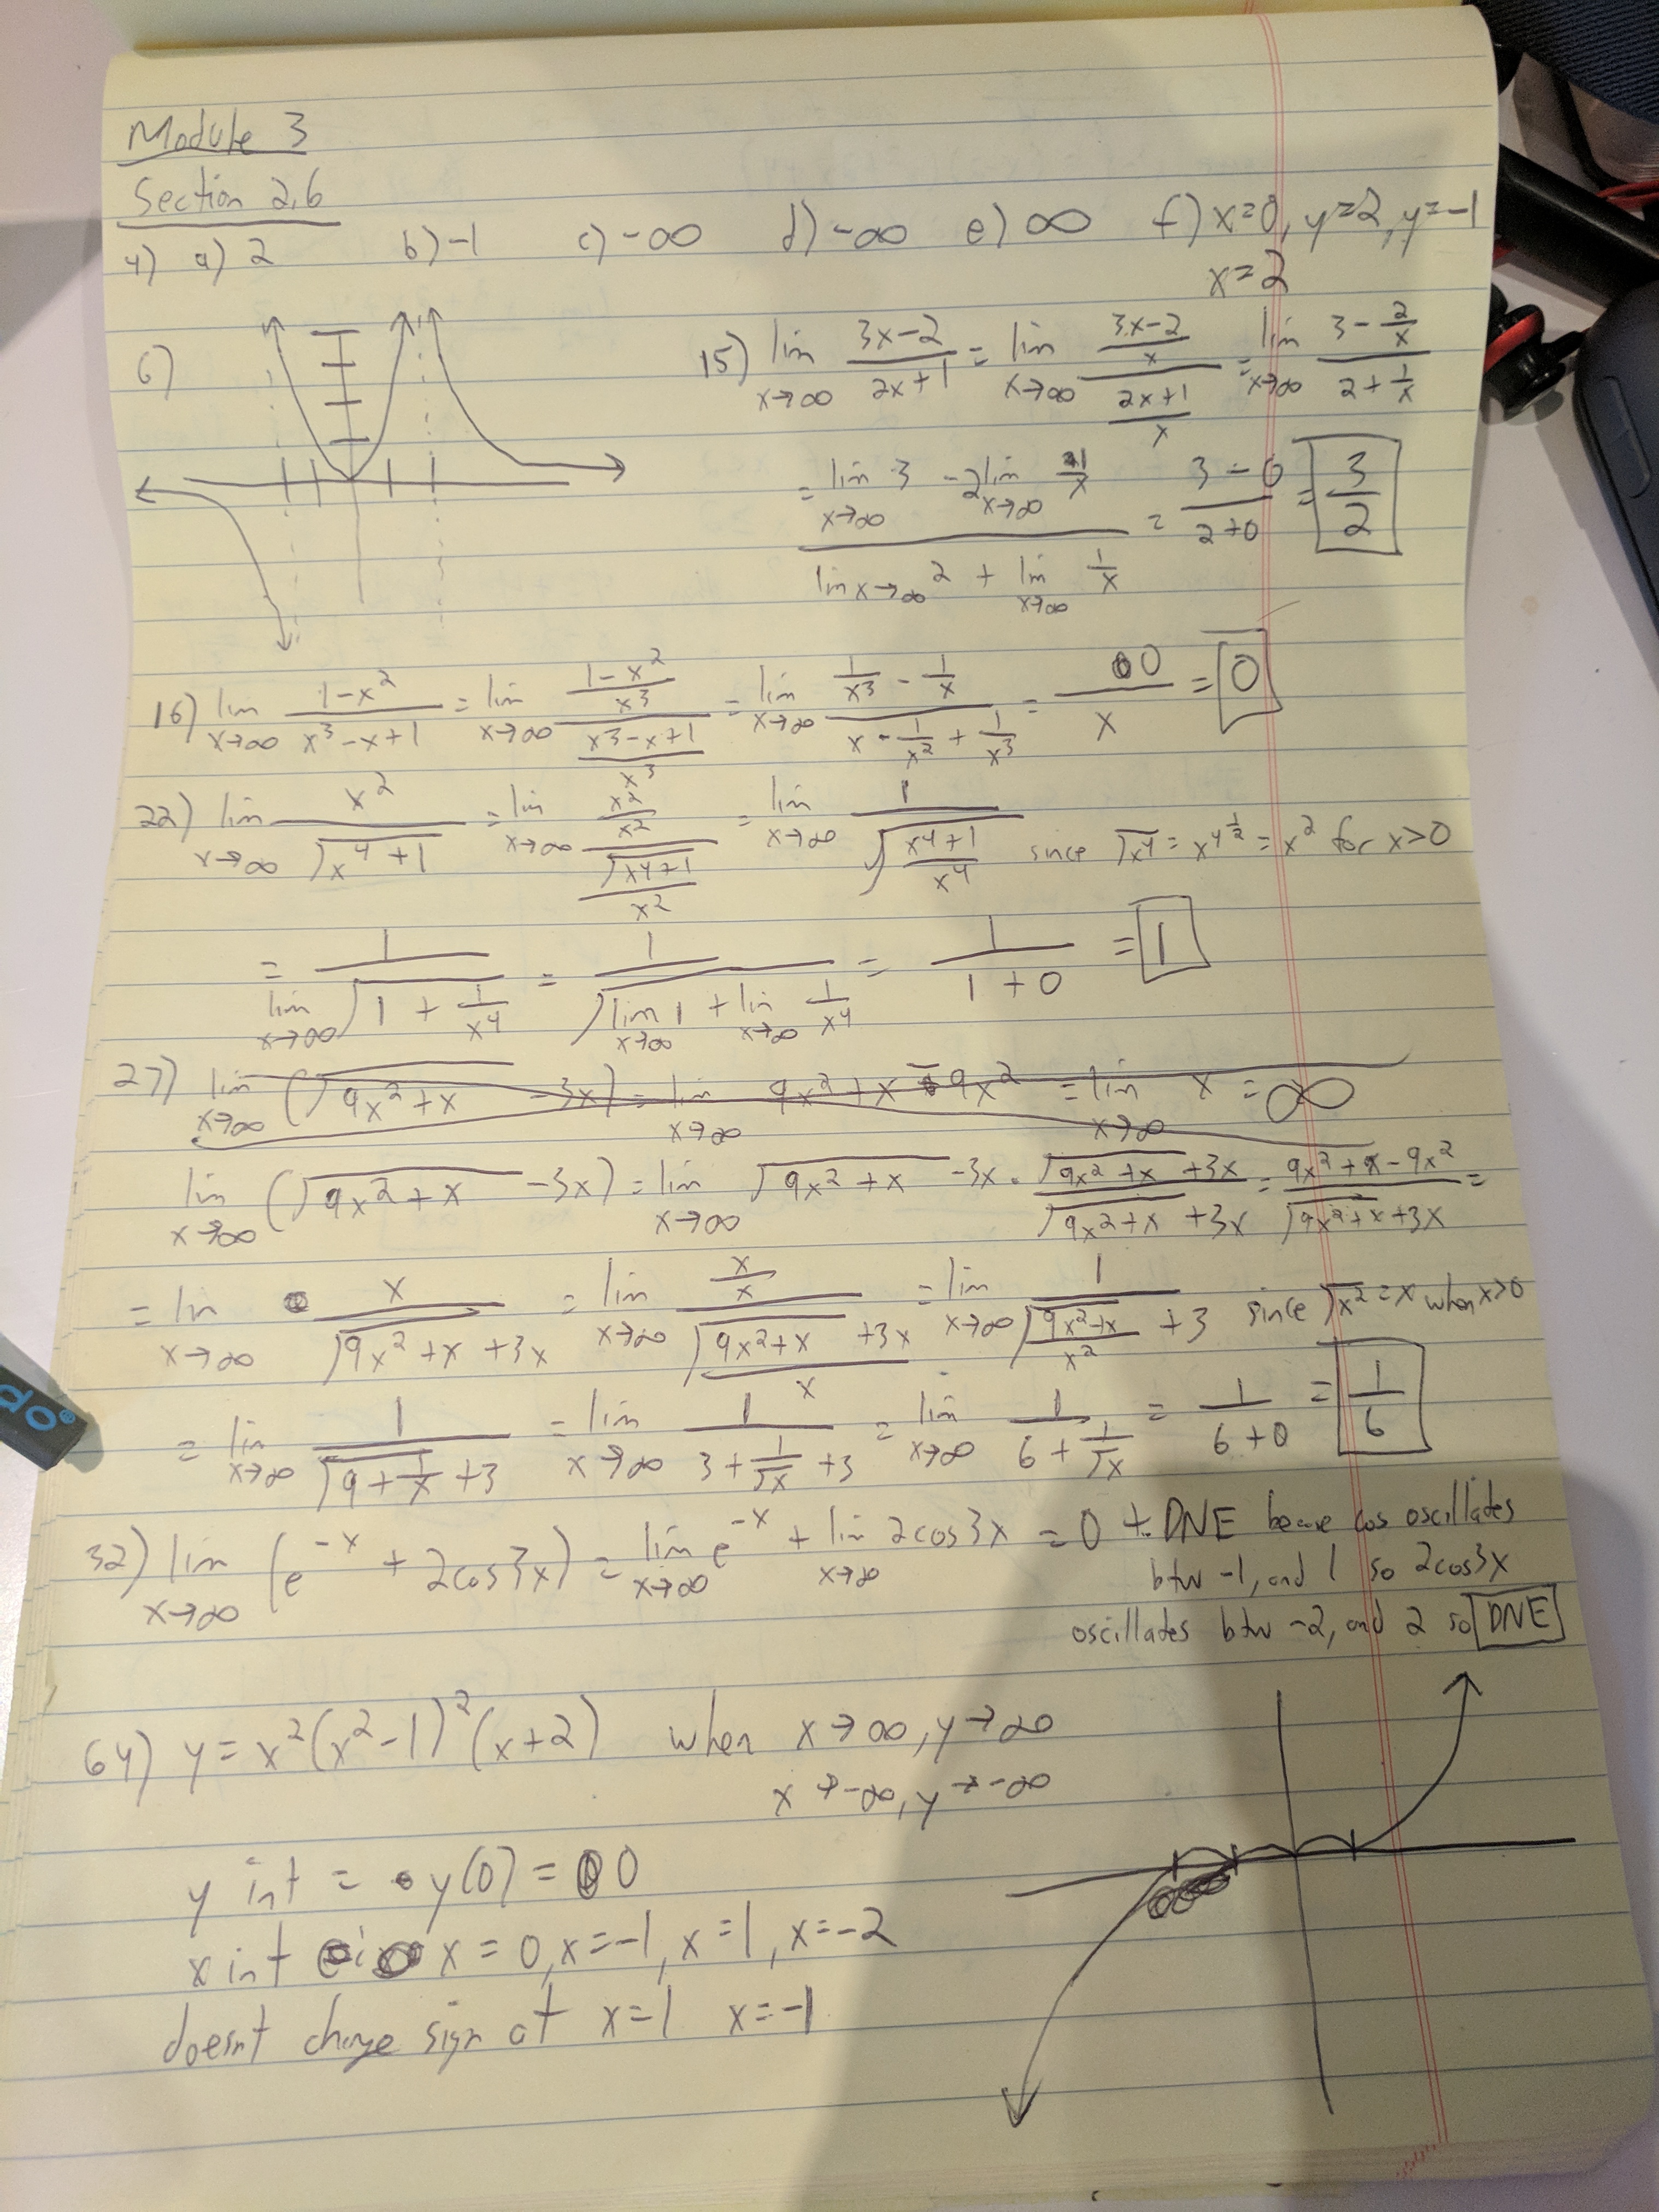 Module 3
Section 2.6
4) a) 2 b) -1 c) -∞ d) -∞ e) ∞ f) x=0, y=2, y=-1
x=2
6)
15) lim x→∞ (3x-2)/(2x+1) = lim x→∞ ((3x-2)/x)/((2x+1)/x) = lim x→∞ (3 - 2/x)/(2 + 1/x)
= (lim x→∞ 3 - 2 lim x→∞ 1/x)/(lim x→∞ 2 + lim x→∞ 1/x) = (3-0)/(2+0) = 3/2
16) lim x→∞ (1-x²)/(x³-x+1) = lim x→∞ ((1-x²)/x³)/((x³-x+1)/x³) = lim x→∞ (1/x³ - 1/x)/(x - 1/x² + 1/x³) = 0/x = 0
22) lim x→∞ x²/√(x⁴+1) = lim x→∞ (x²/x²)/(√(x⁴+1)/x²) = lim x→∞ 1/√((x⁴+1)/x⁴) since √x⁴ = x^4^(1/2) = x² for x>0
= 1/(lim x→∞ √(1 + 1/x⁴)) = 1/√(lim x→∞ 1 + lim x→∞ 1/x⁴) = 1/(1+0) = 1
27) lim x→∞ (√(9x²+x) - 3x) = lim x→∞ 9x²+x - 9x² = lim x→∞ x = ∞
lim x→∞ (√(9x²+x) - 3x) = lim x→∞ √(9x²+x) - 3x · (√(9x²+x) + 3x)/(√(9x²+x) + 3x) = (9x²+x-9x²)/(√(9x²+x) + 3x) =
= lim x→∞ x/(√(9x²+x) + 3x) = lim x→∞ (x/x)/((√(9x²+x) + 3x)/x) = lim x→∞ 1/(√((9x²+x)/x²) + 3) since √x² = x when x>0
= lim x→∞ 1/(√(9 + 1/x) + 3) = lim x→∞ 1/(3 + 1/√x + 3) = lim x→∞ 1/(6 + 1/√x) = 1/(6+0) = 1/6
32) lim x→∞ (e^-x + 2cos3x) = lim x→∞ e^-x + lim x→∞ 2cos3x = 0 + DNE becuse cos oscillates
btw -1, and 1 so 2cos3x
oscillates btw -2, and 2 so DNE
64) y = x²(x²-1)²(x+2) when x→∞, y→∞
x→-∞, y→-∞
y int = y(0) = 0
x int x=0, x=-1, x=1, x=-2
doesnt change sign at x=1 x=-1
do®